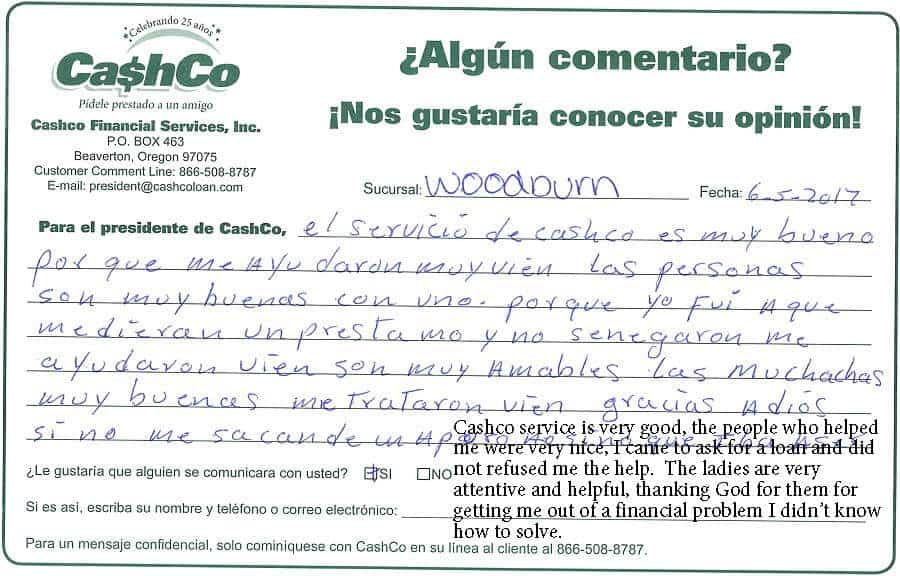 Celebrando 25 años
Ca$hCo
Pídele prestado a un amigo
Cashco Financial Services, Inc.
P.O. BOX 463
Beaverton, Oregon 97075
Customer Comment Line: 866-508-8787
E-mail: president@cashcoloan.com
¿Algún comentario?
¡Nos gustaría conocer su opinión!
Sucursal: Woodburn Fecha: 6-5-2017
Para el presidente de CashCo, el servició de cashco es muy bueno
por que me Ayudaron muy vien las personas
son muy buenas con uno. porque yo fui A que
me dieran un prestamo y no senegaron me
ayudaron vien son muy Amables las muchachas
muy buenas me trataron vien gracias A diós
si no me sacan de un Apuro
Cashco service is very good, the people who helped
me were very nice, I came to ask for a loan and did
not refused me the help. The ladies are very
attentive and helpful, thanking God for them for
getting me out of a financial problem I didn't know
how to solve.
¿Le gustaría que alguien se comunicara con usted? SI NO
Si es así, escriba su nombre y teléfono o correo electrónico:
Para un mensaje confidencial, solo cominiquese con CashCo en su línea al cliente al 866-508-8787.